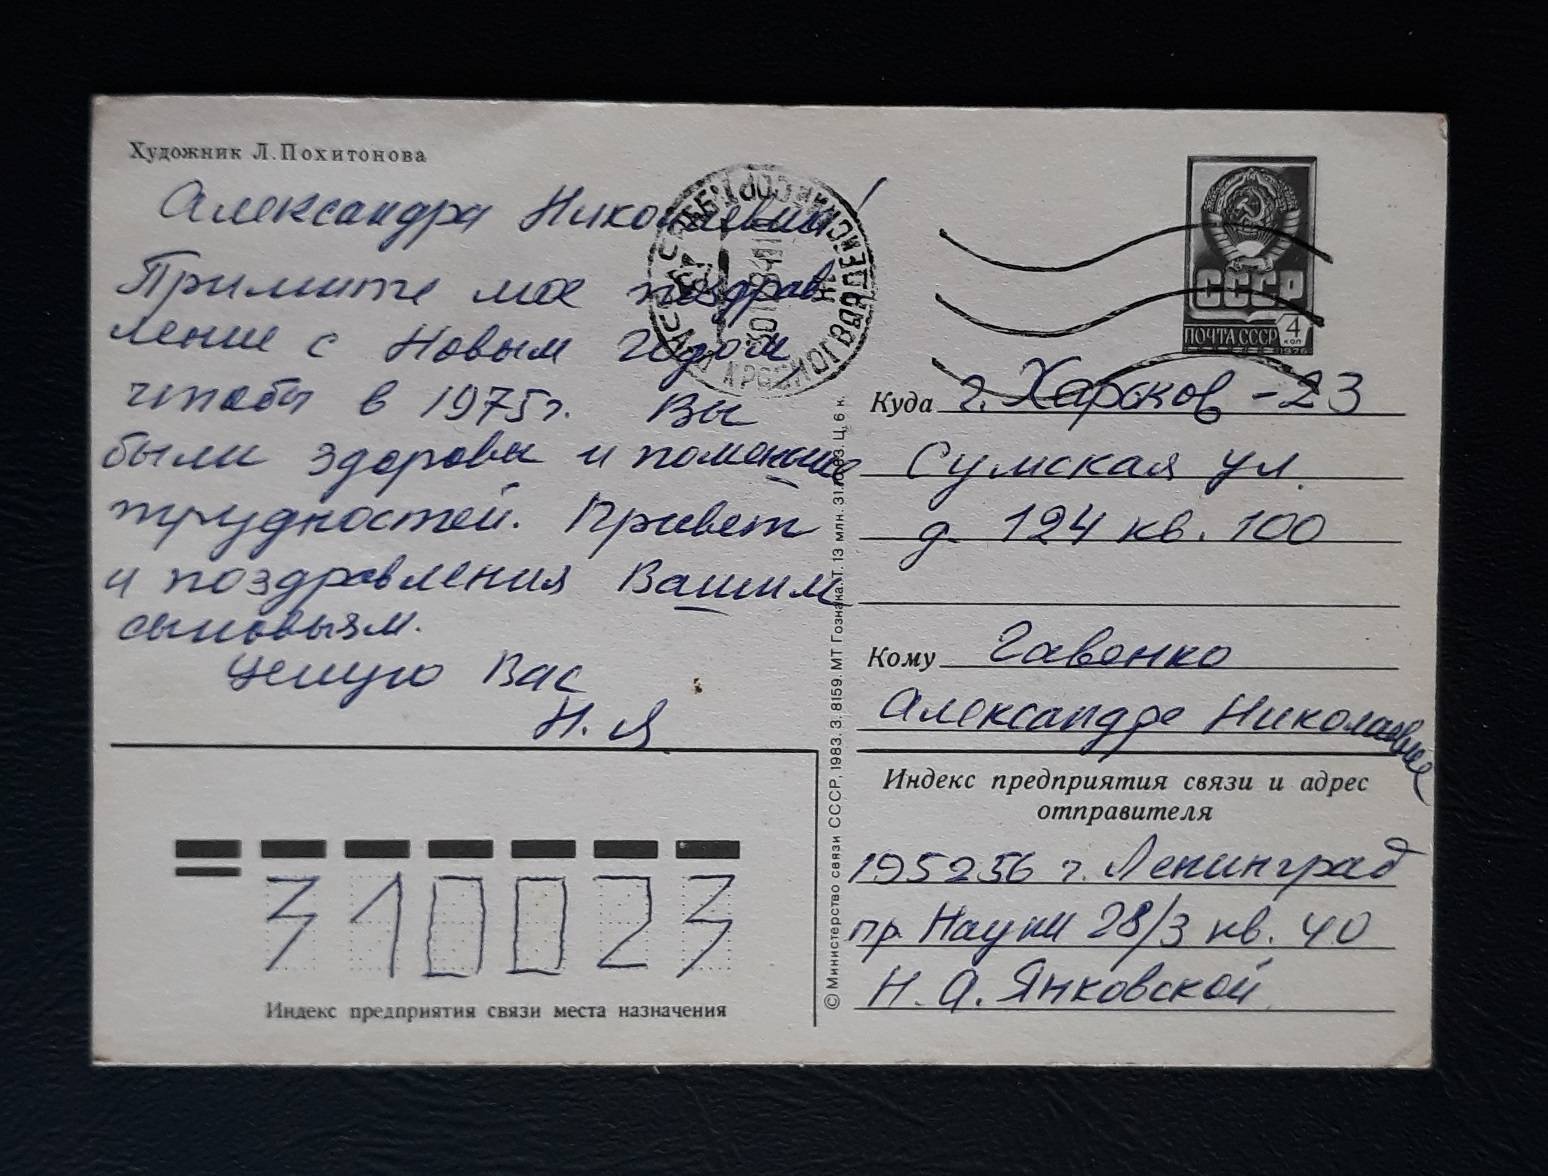 Художник Л. Похитонова
Александра Николаевна!
Примите мое поздрав
ление с Новым годом
чтобы в 1975г. Вы
были здоровы и поменьше
трудностей. Привет
и поздравления Вашим
сыновьям.
Целую Вас
Н. Я
СССР
ПОЧТА СССР 4 КОП
1976
Куда г. Харьков - 23
Сумская ул.
д. 124 кв. 100
Кому Гавенко
Александре Николаевне
Индекс предприятия связи и адрес
отправителя
195256 г. Ленинград
пр. Науки 28/3 кв. 40
Н. А. Янковской
© Министерство связи СССР, 1983. З. 8159. МТ Гознака. Т. 13 млн. Ц. 6 к.
310023
Индекс предприятия связи места назначения